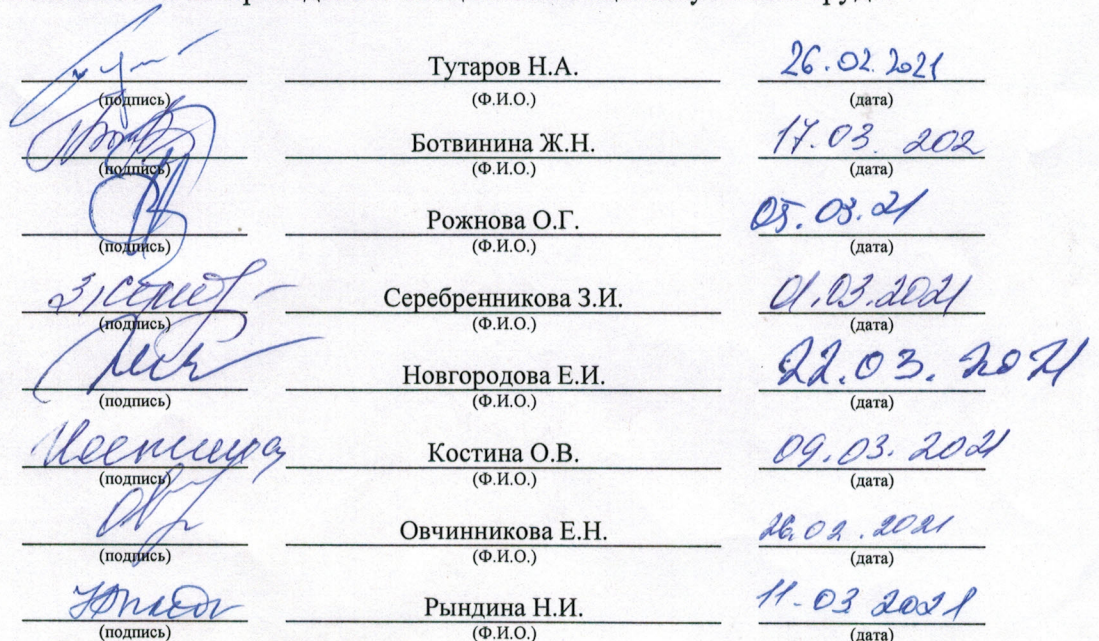 Тутаров Н.А. 26.02.2021
(подпись) (Ф.И.О.) (дата)
Ботвинина Ж.Н. 17.03. 202
(подпись) (Ф.И.О.) (дата)
Рожнова О.Г. 05.03.21
(подпись) (Ф.И.О.) (дата)
Серебренникова З.И. 01.03.2021
(подпись) (Ф.И.О.) (дата)
Новгородова Е.И. 22.03.2021
(подпись) (Ф.И.О.) (дата)
Костина О.В. 09.03.2021
(подпись) (Ф.И.О.) (дата)
Овчинникова Е.Н. 26.02.2021
(подпись) (Ф.И.О.) (дата)
Рындина Н.И. 11.03 2021
(подпись) (Ф.И.О.) (дата)